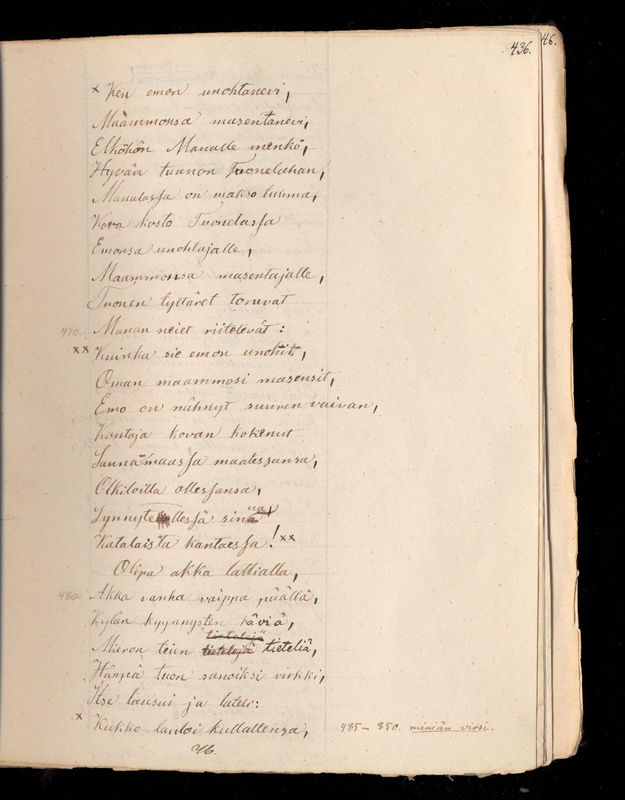 436.
46.
× Ken emon unohtanevi,
Maammonsa masentanevi,
Elköhön Manalle menkö,
Hyvän tunnon Tuonelahan,
Manalassa on makso tuhma,
Kova kosto Tuonelassa
Emonsa unohtajalle,
Maammonsa masentajalle,
Tuonen tyttäret toruvat
470. Manan neiet riitelevät:
×× Kuinka sie emon unohit,
Oman maammosi masensit,
Emo on nähnyt suuren vaivan,
Kantaja kovan kokenut
Saunamaassa maatessansa,
Olkiloilla ollessansa,
Synnytellessä sinua
Katalaista kantaessa!××
Olipa akka lattialla,
480. Akka vanha vaippa päällä,
Kylän kynnysten käviä,
Mieron teien tieteliä,
Hänpä tuon sanoiksi virkki,
Itse lausui ja lateli:
× Kukko lauloi kullallensa,
485–850. miniän virsi.
46.